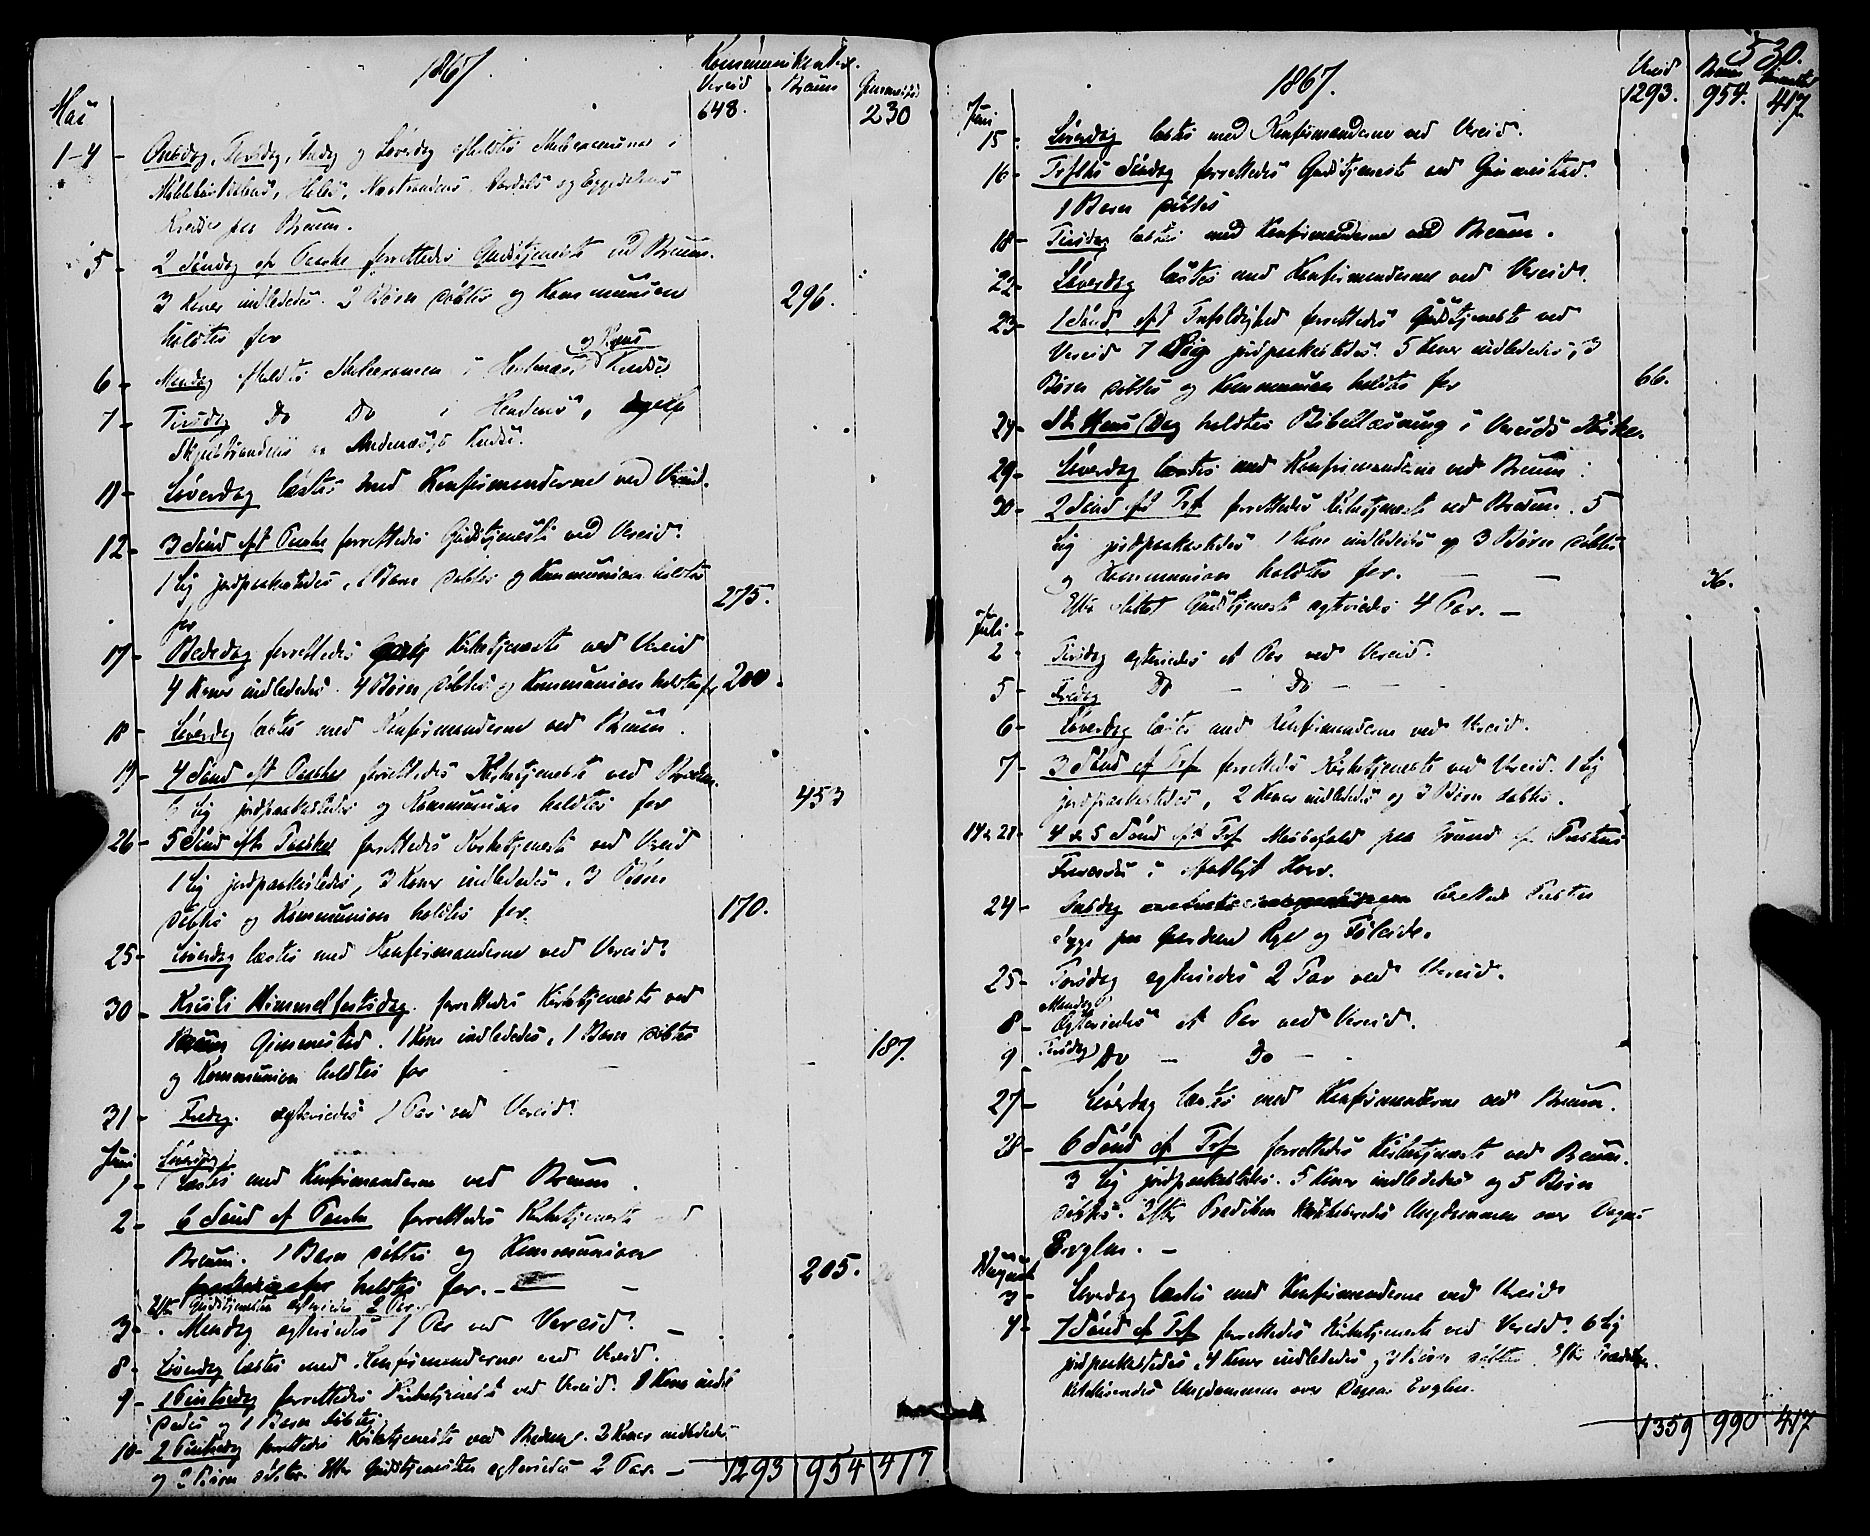 1867.
Kommunikanter.
Vereid Breum Gimmestad
Mai 648. 230
1-4 - Onsdag, Torsdag, Fredag og Löverdag afholdtes Skoleexamener i
Kredse paa Breum.
5 - 2 Söndag ef Paaske forrettedes Gudstjeneste ved Breum.
3 Koner indlededes. 2 Börn döbtes og Kommunion 296.
holdtes for
og
6 - Mandag afholdtes Skoleexamen i Kreds
7 - Tirsdag Do Do i
og Kreds.
11 - Löverdag læstes med Konfirmanderne ved Vereid.
12 - 3 Sönd eft Paaske forrettedes Gudstjeneste ved Vereid.
1 Lig jordpaakastedes, 1 Barn döbtes og Kommunion holdtes 275.
for
17 - Bededag forrettedes Kirketjeneste ved Vereid
4 Koner indlededes. 4 Börn döbtes og Kommunion holdtes for 200.
18 - Löverdag læstes med Konfirmanderne ved Breum.
19 - 4 Sönd eft Paaske forrettedes Kirketjeneste ved Breum.
Lig jordpaakastedes og Kommunion holdtes for 453
26 - 5 Sönd efter Paaske forrettedes Kirketjeneste ved Vereid
1 Lig jordpaakastedes, 3 Koner indlededes, 3 Börn
döbtes og Kommunion holdtes for. 170.
25 - Löverdag læstes med Konfirmanderne ved Vereid.
30 - Kristi Himmelfartsdag forrettedes Kirketjeneste ved
Breum Gimmestad. 1 Kone indlededes, 1 Barn döbtes 187.
og Kommunion holdtes for
31 - Fredag. ægteviedes 1 Par ved Vereid.
Juni Löverdag
1 - Læstes med Konfirmanderne ved Breum.
2 - 6 Sönd ef Paaske forrettedes Kirketjeneste ved
Breum. 1 Barn döbtes og Kommunion
holdtes for. - 205.
Efter Gudstjenesten ægteviedes 2 Par.
3 - Mandag ægteviedes 1 Par ved Vereid. -
8 - Löverdag læstes med Konfirmanderne ved Vereid.
9 - 1 Pintsedag forrettedes Kirketjeneste ved Vereid. 1 Kone indle
dedes og 1 Barn döbtes
10 - 2 Pintsedag forrettedes Kirketjeneste ved Breum. 2 Koner indlededes
og 2 Börn döbtes. Efter Gudstjenesten ægteviedes 2 Par. - 1293 954 417
530.
1867. Vereid Breum Gimmestad
Juni 1293. 954. 417.
15 - Löverdag læstes med Konfirmanderne ved Vereid.
16 - Trefths Söndag forrettedes Gudstjeneste ved Gimmestad.
1 Barn döbtes
18 - Tirsdag læstes med Konfirmanderne ved Breum.
22 - Löverdag læstes med Konfirmanderne ved Vereid.
23 - 1 Sönd eft Trefoldighed forrettedes Gudstjeneste ved
Vereid 7 Lig jordpaakastedes. 5 Koner indlededes, 3
Börn döbtes og Kommunion holdtes for 66.
24 - St Hans Dag holdtes Bibellæsning i Vereids Kirke.
29 - Löverdag læstes med Konfirmanderne ved Breum.
30 - 2 Sönd eft Tref forrettedes Kirketjeneste ved Breum. 5
Lig jordpaakastedes 1 Kone indlededes og 3 Börn döbtes
og Kommunion holdtes for. - - 36.
Efter Gudstjeneste ægteviedes 4 Par. -
Juli
2 - Tirsdag ægteviedes et Par ved Vereid.
5 - Fredag Do - Do -
6 - Löverdag læstes med Konfirmanderne ved Vereid.
7 - 3 Sönd ef Tref forrettedes Kirketjeneste ved Vereid. 1 Lig
jordpaakastedes, 2 Koner indlededes og 3 Börn döbtes.
14 & 21 - 4 & 5 Sönd eft Tref Messefald paa Grund af Prestens
Fraværelse i
24 - Onsdag berettede Presten
Syge paa Gaardene Rye og Föleide.
25 - Torsdag ægteviedes 2 Par ved Vereid.
Mandag
8 - Ægteviedes et Par ved Vereid.
9 - Tirsdag Do - Do -
27 - Löverdag læstes med Konfirmanderne ved Breum.
28 - 6 Sönd ef Tref forrettedes Kirketjeneste ved Breum.
3 Lig jordpaakastedes. 5 Koner indlededes og 5 Börn
döbtes. Efter Prædiken katekiseredes Ungdommen over Dagens
Evglm. -
August
3 - Löverdag læstes med Konfirmanderne ved Vereid
4 - 7 Sönd ef Tref forrettedes Kirketjeneste ved Vereid. 6 Lig
jordpaakastedes, 4 Koner indlededes og 3 Börn döbtes. Efter Prædiken
katekiseredes Ungdommen over Dagens Evglm.
1359 990 417